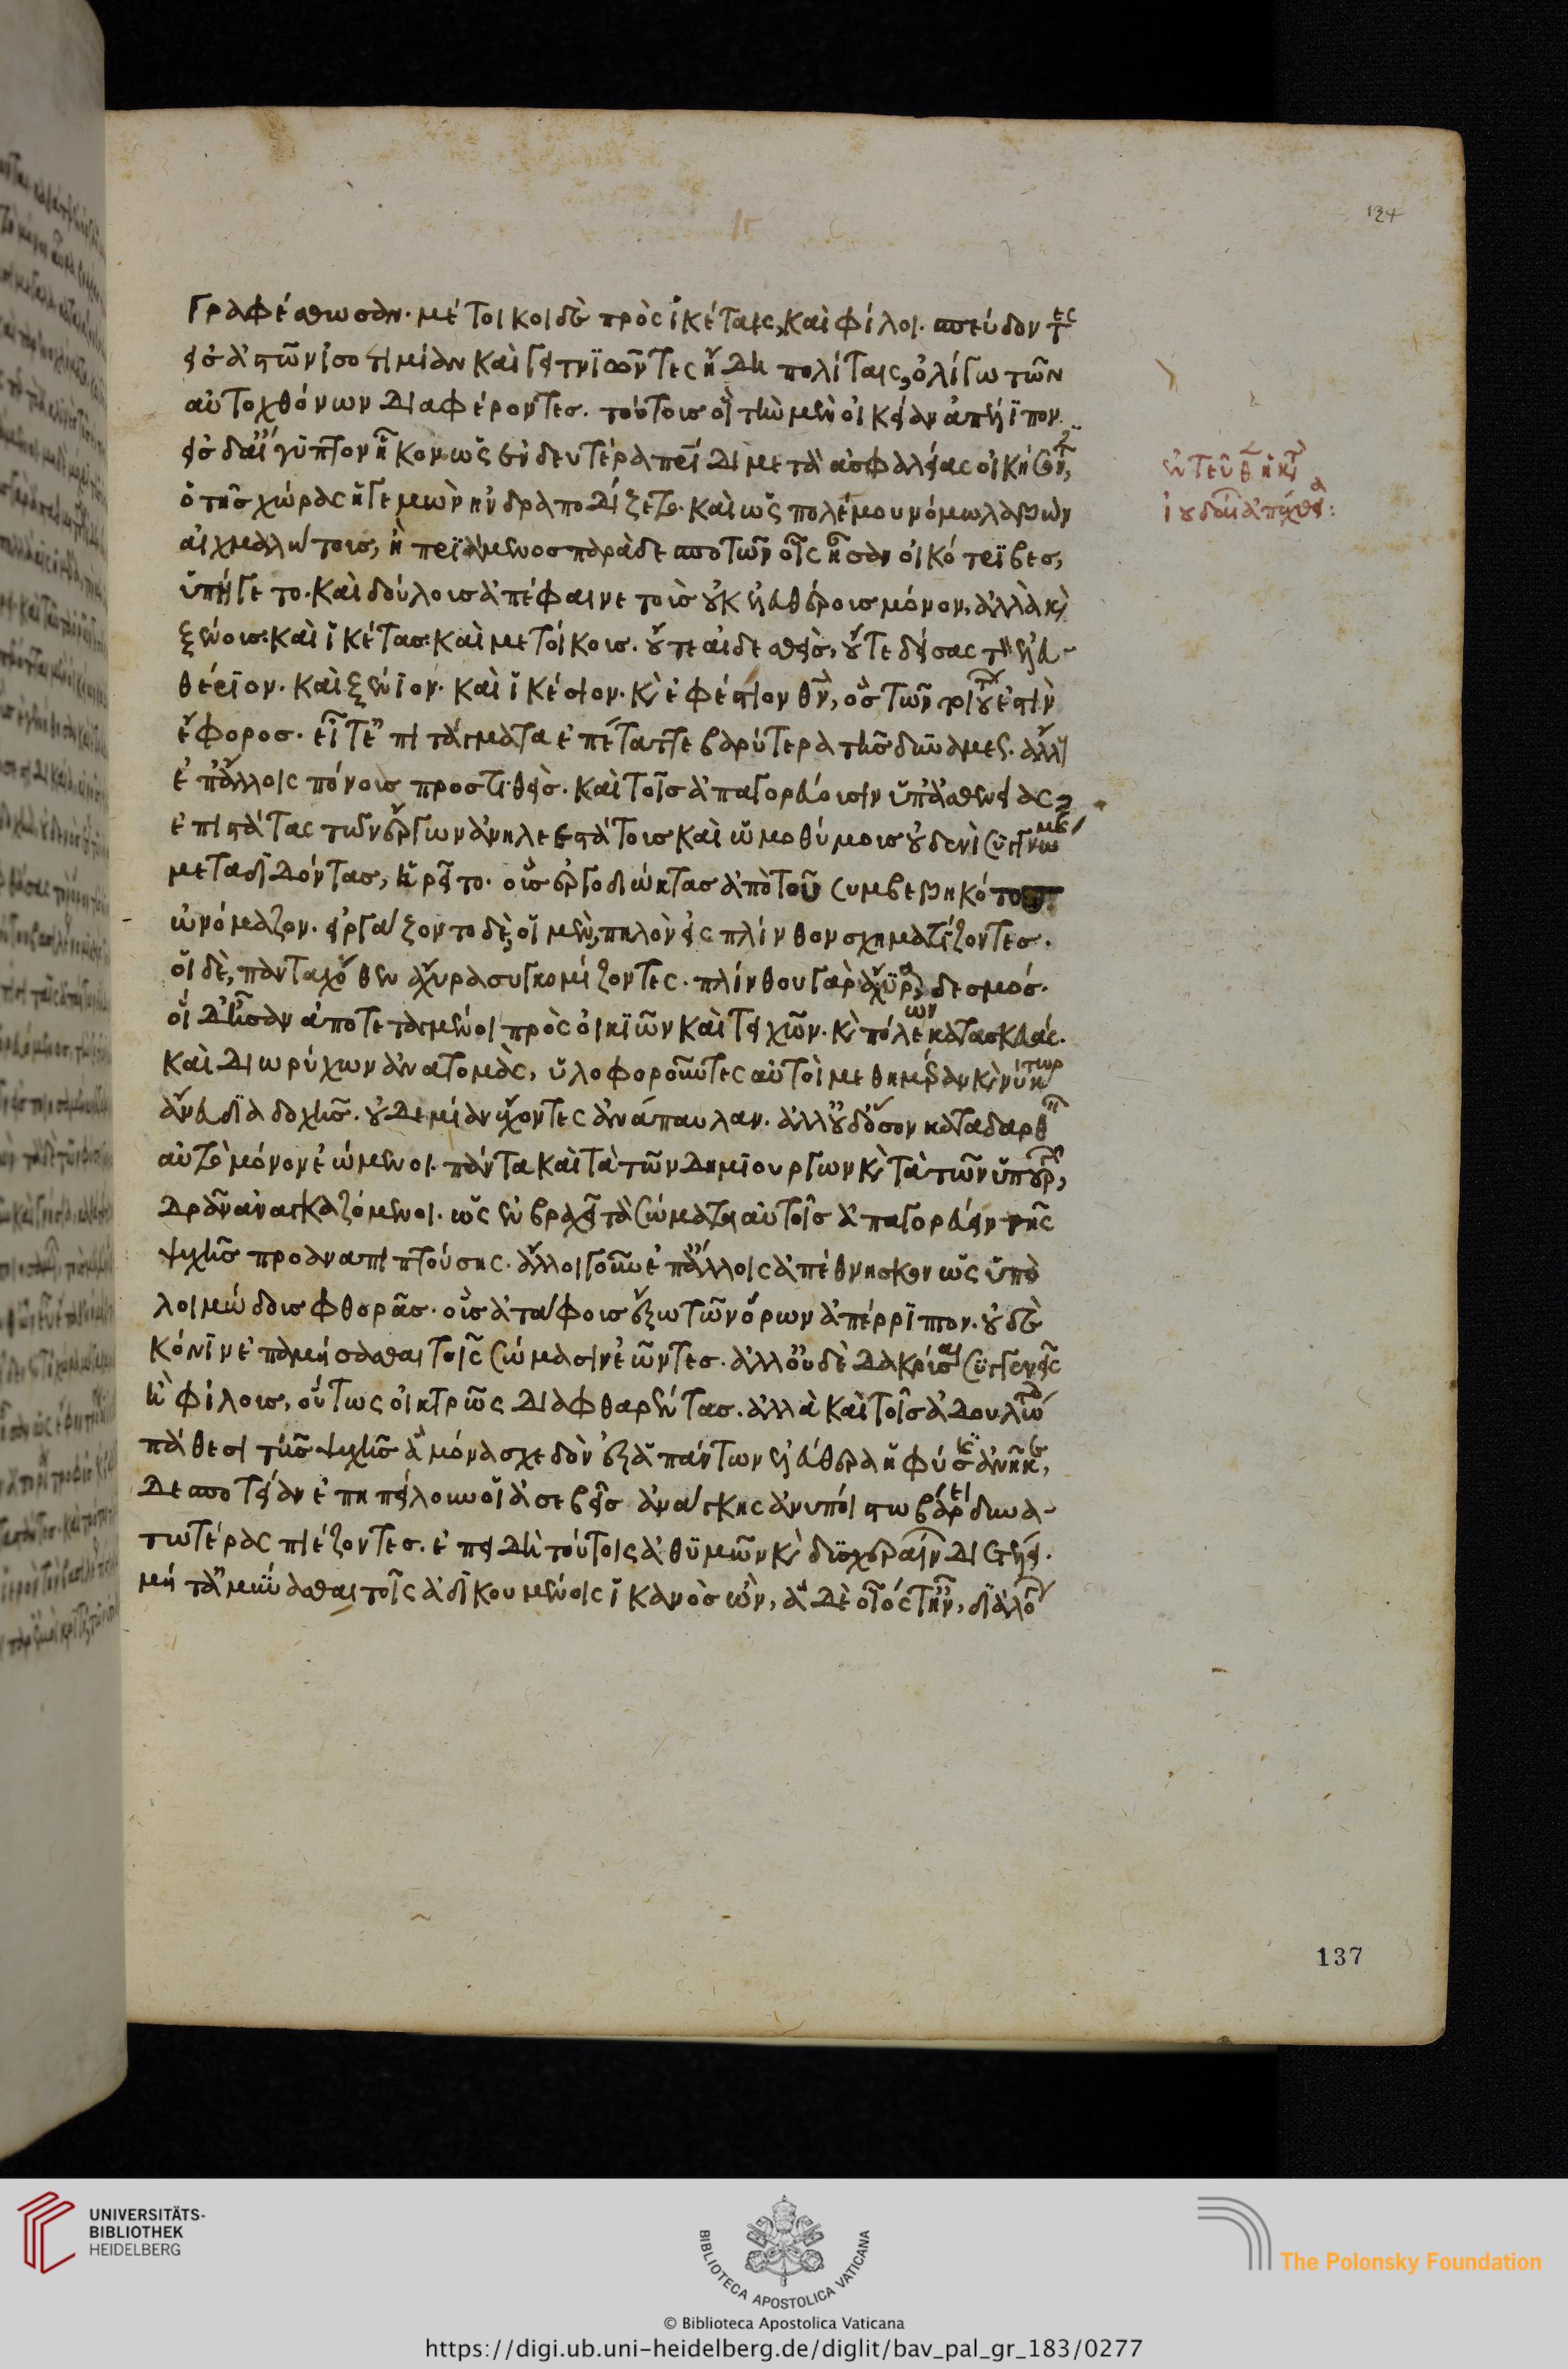 γραφέσθωσαν. μέτοικοι δὲ πρὸς ἱκέταις, καὶ φίλοι. σπεύδοντες
εἰς ἀστῶν ἰσοτιμίαν καὶ γειτνιῶντες ἤδη πολίταις, ὀλίγω τῶν
αὐτοχθόνων διαφέροντες. τούτους οἳ τὴν μὲν οἰκείαν ἀπέλιπον.
εἰς δ' αἴγυπτον ἧκον ὡς ἐν δευτέρα πρίδι μετὰ ἀσφαλείας οἰκήσοντες,
ὁ τῆς χώρας ἡγεμὼν ἠνδραποδίζετο. καὶ ὡς πολέμου νόμω λαβὼν
αἰχμαλώτους, ἢ πριάμενος παρὰ δεσποτῶν οἷς ἦσαν οἰκότριβες,
ὑπήγετο. καὶ δούλους ἀπέφαινε τοὺς οὐκ ἐλευθέρους μόνον, ἀλλὰ κὶ
ξένους· καὶ ἱκέτας· καὶ μετοίκους. οὔτε αἰδεσθεὶς, οὔτε δείσας τὸν ἐλευ-
θέριον. καὶ ξένιον. καὶ ἱκέσιον. κὶ ἐφέστιον θν, ὃς τῶν τοιούτων ἐστὶν
ἔφορος. εἶτ' ἐπιτάγματα ἐπέταττε βαρύτερα τῆς δυνάμεως. ἄλλους
ἐπ' ἄλλοις πόνους προστιθεὶς. καὶ τοῖς ἀπαγορεύουσιν ὑπ' ἀσθενείας
ἐπιστάτας τῶν ἔργων ἀνηλεεστάτους καὶ ὠμοθύμους οὐδενὶ συγγνώμης
μεταδιδόντας, ἡρεῖτο. οὓς ἐργοδιώκτας ἀπὸ τοῦ συμβεβηκότος
ὠνόμαζον. εἰργάζοντο δὲ, οἱ μὲν, πηλὸν εἰς πλίνθον σχηματίζοντες.
οἱ δὲ, πανταχόθεν ἄχυρα συγκομίζοντες. πλίνθου γὰρ ἄχυρα, δεσμός.
οἱ δ' ἦσαν ἀποτεταγμένοι πρὸς οἰκιῶν καὶ τειχῶν. κὶ πόλεων κατασκευάς.
καὶ διωρύχων ἀνατομὰς, ὑλοφοροῦντες αὐτοὶ μεθημέραν κὶ νύκτωρ
ἄνευ διαδοχῆς. οὐδεμίαν ἔχοντες ἀνάπαυλαν. ἀλλ' οὐδ' ὅσον καταδαρθεῖν
αὐτὸ μόνον ἐώμενοι. πάντα καὶ τὰ τῶν δημιουργῶν κὶ τὰ τῶν ὑπουργῶν,
δρᾶν ἀναγκαζόμενοι. ὡς ἐν βραχεῖ τὰ σώματα αὐτοῖς ἀπαγορεύειν τῆς
ψυχῆς προαναπιπτούσης. ἄλλοι γοῦν ἐπ' ἄλλοις ἀπέθνησκον ὡς ὑπὸ
λοιμώδους φθορᾶς. οὓς ἀτάφους ἔξω τῶν ὅρων ἀπέρριπτον. οὐδὲ
κόνιν ἐπαμήσασθαι τοῖς σώμασιν ἐῶντες. ἀλλ' οὐδὲ δακρύσαι συγγενεῖς
ἢ φίλους, οὕτως οἰκτρῶς διαφθαρέντας. ἀλλὰ καὶ τοῖς ἀδουλώτοις
πάθεσι τῆς ψυχῆς ἃ μόνα σχεδὸν ἐξ ἁπάντων ἐλεύθερα ἡ φύσις ἀνῆκε,
δεσποτείαν ἐπηπείλουν οἱ ἀσεβεῖς ἀνάγκης ἀνυποίστω βάρει δυνα-
τωτέρας πιέζοντες. ἐπεὶ δὴ τούτοις ἀθυμῶν κὶ δυσχεραίνων διετέλει.
μήτ' ἀμύνασθαι τοῖς ἀδικουμένοις ἱκανὸς ὢν, ἃ δὲ οἷός τ' ἦν, διὰ λόγων
124
137
UNIVERSITÄTS-
BIBLIOTHEK
HEIDELBERG
BIBLIOTECA APOSTOLICA VATICANA
The Polonsky Foundation
© Biblioteca Apostolica Vaticana
https://digi.ub.uni-heidelberg.de/diglit/bav_pal_gr_183/0277